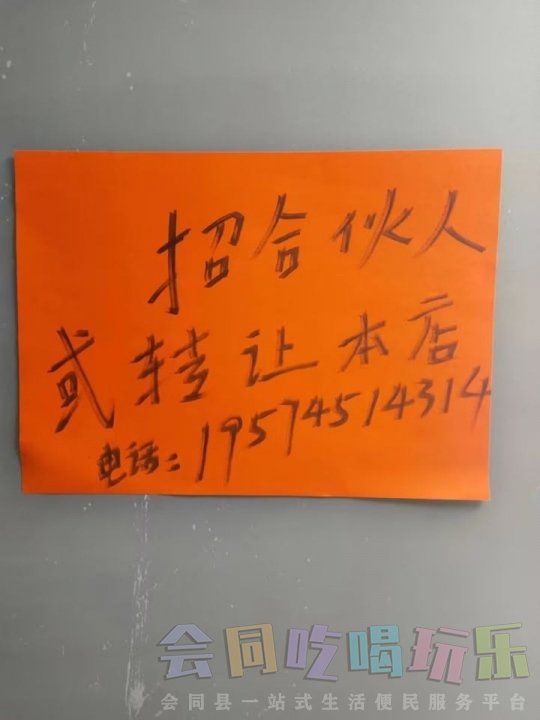 招合伙人
或转让本店
电话:19574514314
会同吃喝玩乐
会同县一站式生活便民服务平台